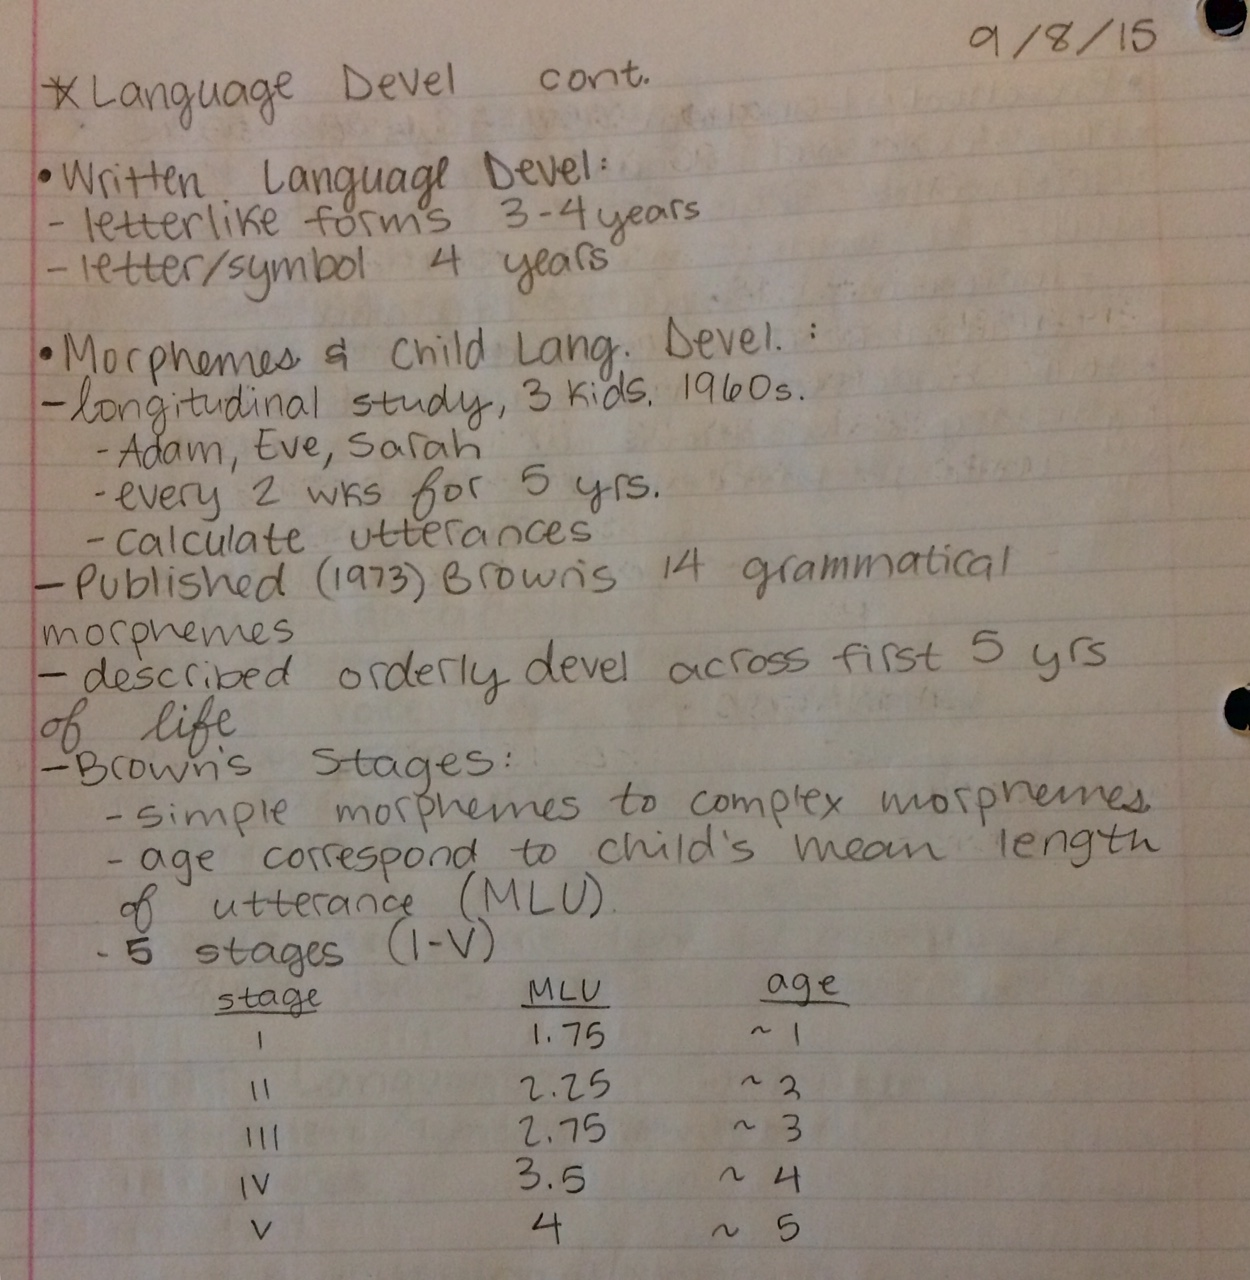 9/8/15
*Language Devel cont.
•Written Language Devel:
- letterlike forms 3-4 years
- letter/symbol 4 years
•Morphemes & Child Lang. Devel. :
- longitudinal study, 3 kids. 1960s.
- Adam, Eve, Sarah
- every 2 wks for 5 yrs.
- calculate utterances
- Published (1973) Brown's 14 grammatical
morphemes
- described orderly devel across first 5 yrs
of life
- Brown's Stages:
- simple morphemes to complex morphemes
- age correspond to child's mean length
of utterance (MLU).
- 5 stages (I-V)
stage MLU age
I 1.75 ~ 1
II 2.25 ~ 2
III 2.75 ~ 3
IV 3.5 ~ 4
V 4 ~ 5